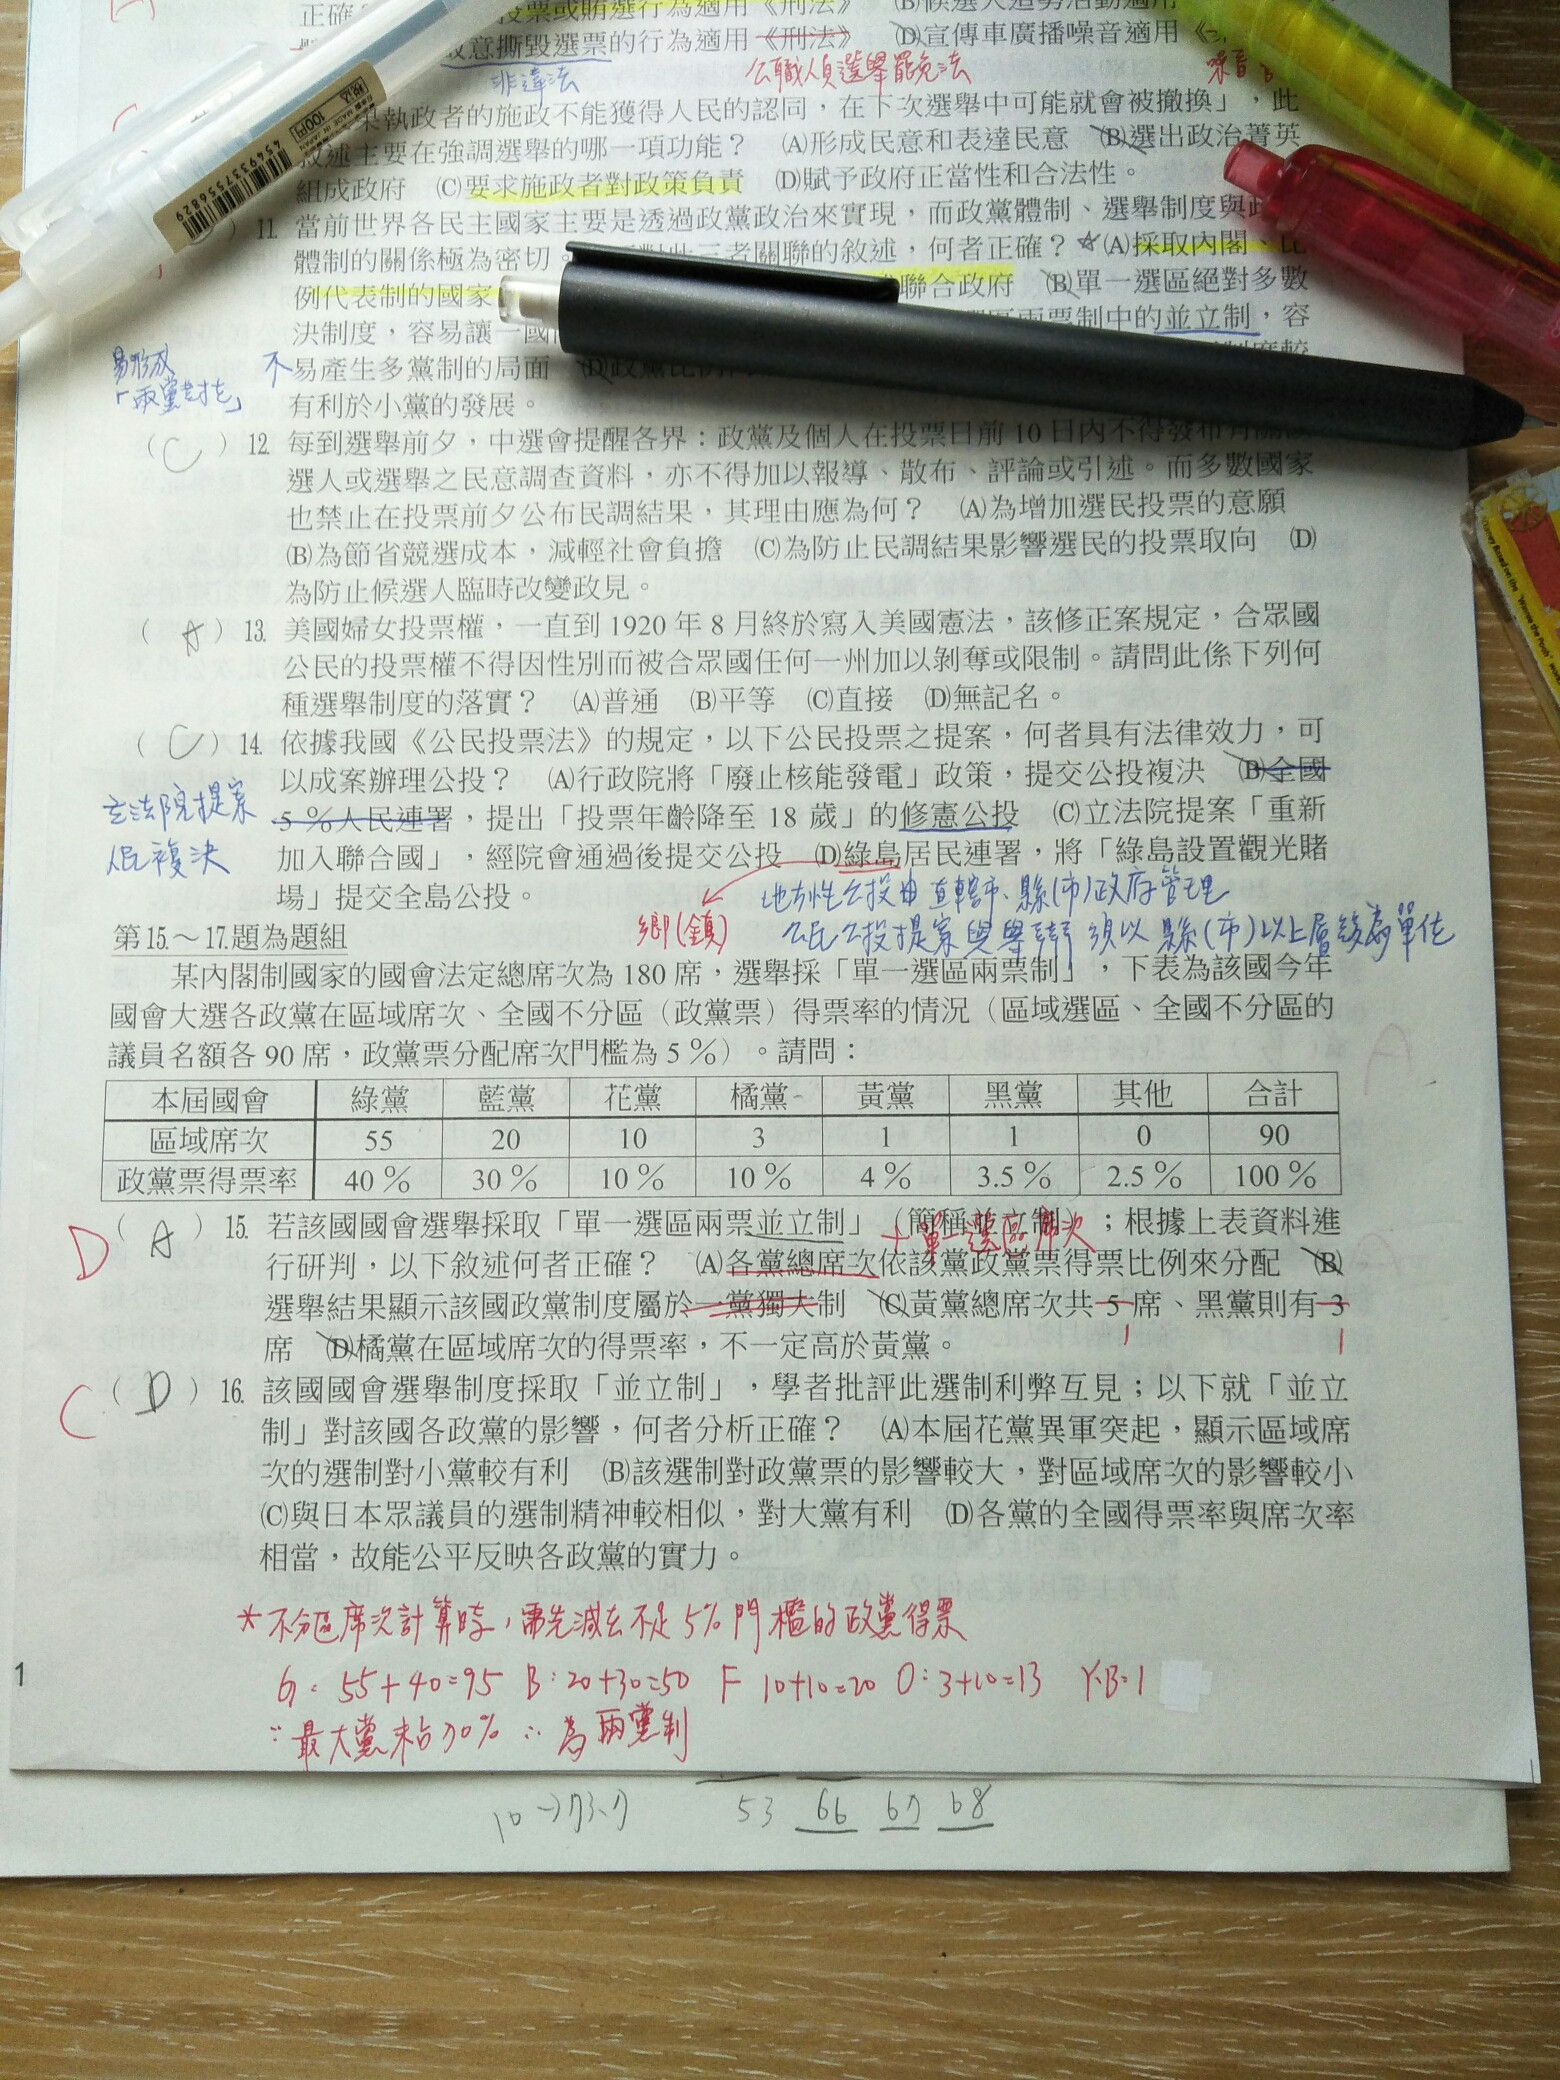 投票或賄選行為適用《刑法》 (B)候選人造勢活動適用
故意撕毀選票的行為適用《刑法》 (D)宣傳車廣播噪音適用《
非違法 公職人員選舉罷免法 噪音
果執政者的施政不能獲得人民的認同，在下次選舉中可能就會被撤換」，此
敘述主要在強調選舉的哪一項功能？ (A)形成民意和表達民意 (B)選出政治菁英
組成政府 (C)要求施政者對政策負責 (D)賦予政府正當性和合法性。
) 11. 當前世界各民主國家主要是透過政黨政治來實現，而政黨體制、選舉制度與
體制的關係極為密切。 三者關聯的敘述，何者正確？ ☆(A)採取內閣、比
例代表制的國家 聯合政府 (B)單一選區絕對多數
決制度，容易讓一 兩票制中的並立制，容
易形成 不易產生多黨制的局面 (D)政黨比例 制度較
「兩黨對壘」 有利於小黨的發展。
( C ) 12. 每到選舉前夕，中選會提醒各界：政黨及個人在投票日前 10 日內不得發布有關
選人或選舉之民意調查資料，亦不得加以報導、散布、評論或引述。而多數國家
也禁止在投票前夕公布民調結果，其理由應為何？ (A)為增加選民投票的意願
(B)為節省競選成本，減輕社會負擔 (C)為防止民調結果影響選民的投票取向 (D)
為防止候選人臨時改變政見。
( A ) 13. 美國婦女投票權，一直到 1920 年 8 月終於寫入美國憲法，該修正案規定，合眾國
公民的投票權不得因性別而被合眾國任何一州加以剝奪或限制。請問此係下列何
種選舉制度的落實？ (A)普通 (B)平等 (C)直接 (D)無記名。
( C ) 14. 依據我國《公民投票法》的規定，以下公民投票之提案，何者具有法律效力，可
以成案辦理公投？ (A)行政院將「廢止核能發電」政策，提交公投複決 (B)全國
立法院提案 5 %人民連署，提出「投票年齡降至 18 歲」的修憲公投 (C)立法院提案「重新
人民複決 加入聯合國」，經院會通過後提交公投 (D)綠島居民連署，將「綠島設置觀光賭
場」提交全島公投。
鄉(鎮) 地方性公投由直轄市、縣(市)政府管理
公民公投提案與舉辦須以縣(市)以上層級為單位
第15.～17.題為題組
某內閣制國家的國會法定總席次為 180 席，選舉採「單一選區兩票制」，下表為該國今年
國會大選各政黨在區域席次、全國不分區（政黨票）得票率的情況（區域選區、全國不分區的
議員名額各 90 席，政黨票分配席次門檻為 5 %）。請問：
本屆國會 綠黨 藍黨 花黨 橘黨 黃黨 黑黨 其他 合計
區域席次 55 20 10 3 1 1 0 90
政黨票得票率 40 % 30 % 10 % 10 % 4 % 3.5 % 2.5 % 100 %
D ( A ) 15. 若該國國會選舉採取「單一選區兩票並立制」（簡稱並立制）；根據上表資料進
＋單一選區席次
行研判，以下敘述何者正確？ (A)各黨總席次依該黨政黨票得票比例來分配 (B)
選舉結果顯示該國政黨制度屬於一黨獨大制 (C)黃黨總席次共 5 席、黑黨則有 3
1 1
席 (D)橘黨在區域席次的得票率，不一定高於黃黨。
C ( D ) 16. 該國國會選舉制度採取「並立制」，學者批評此選制利弊互見；以下就「並立
制」對該國各政黨的影響，何者分析正確？ (A)本屆花黨異軍突起，顯示區域席
次的選制對小黨較有利 (B)該選制對政黨票的影響較大，對區域席次的影響較小
(C)與日本眾議員的選制精神較相似，對大黨有利 (D)各黨的全國得票率與席次率
相當，故能公平反映各政黨的實力。
*不分區席次計算時，需先減去不足5%門檻的政黨得票
G: 55+40=95 B:20+30=50 F 10+10=20 O:3+10=13 Y.B=1
∵最大黨未占70% ∴為兩黨制
1
53 66 67 68
100円
MADE IN JAPAN
4549337556829